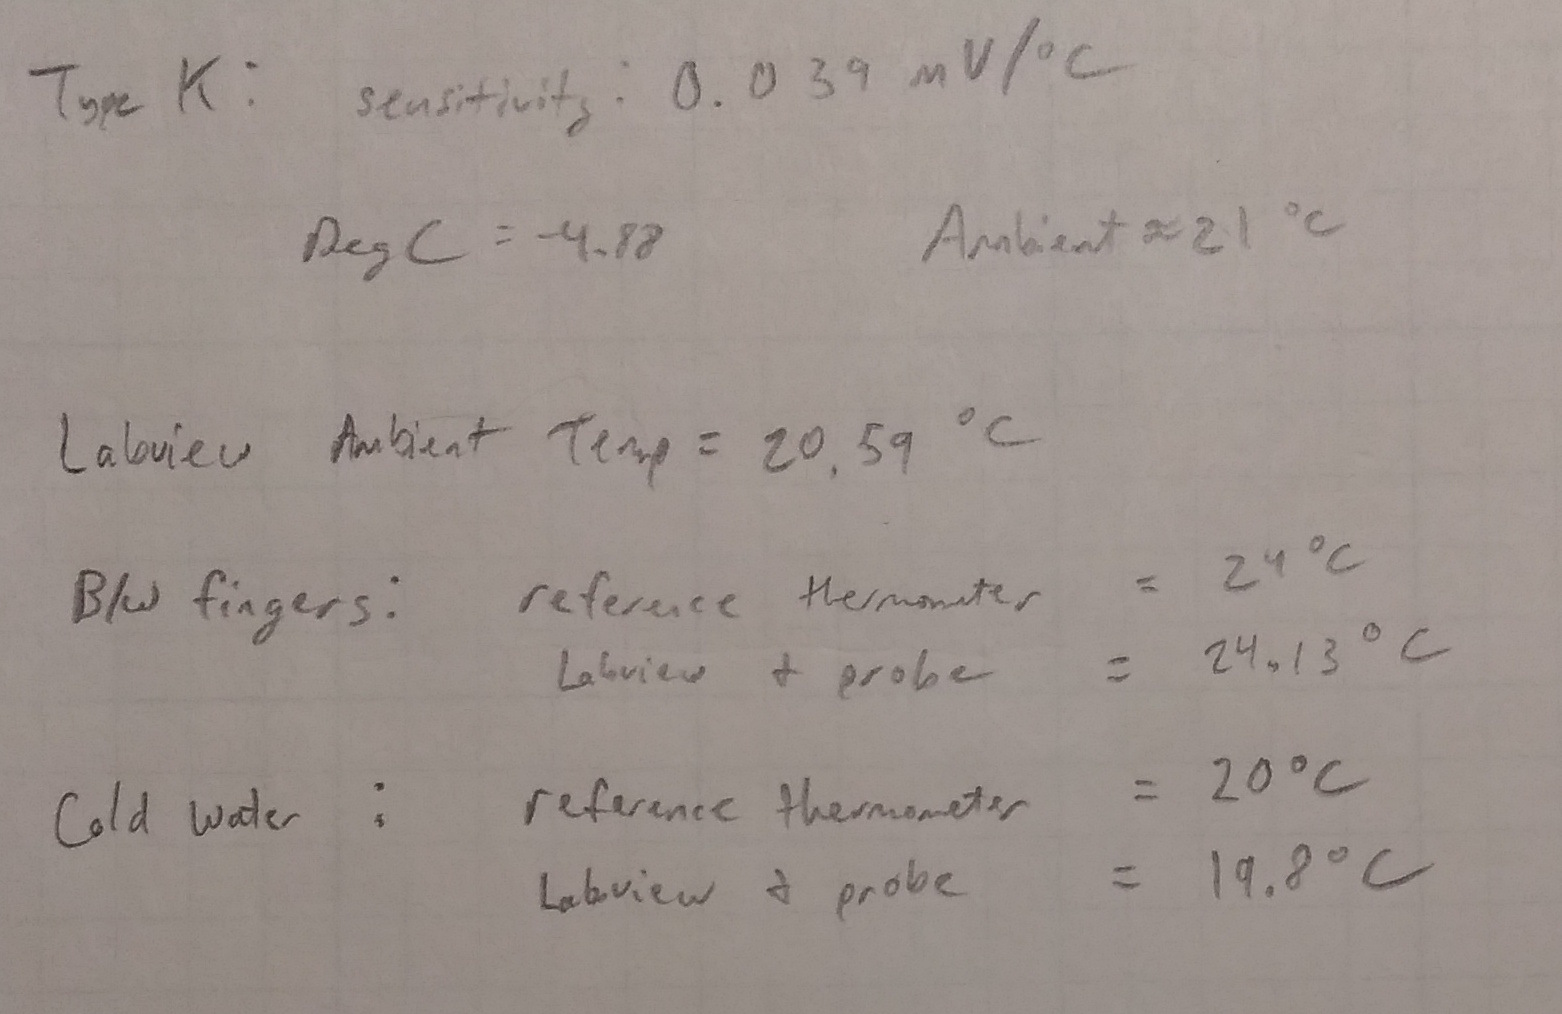 Type K: sensitivity: 0.039 mV/°C
Deg C = -4.88 Ambient ≈ 21 °C
Labview Ambient Temp = 20.59 °C
B/w fingers: reference thermometer = 24°C
Labview & probe = 24.13°C
Cold water: reference thermometer = 20°C
Labview & probe = 19.8°C